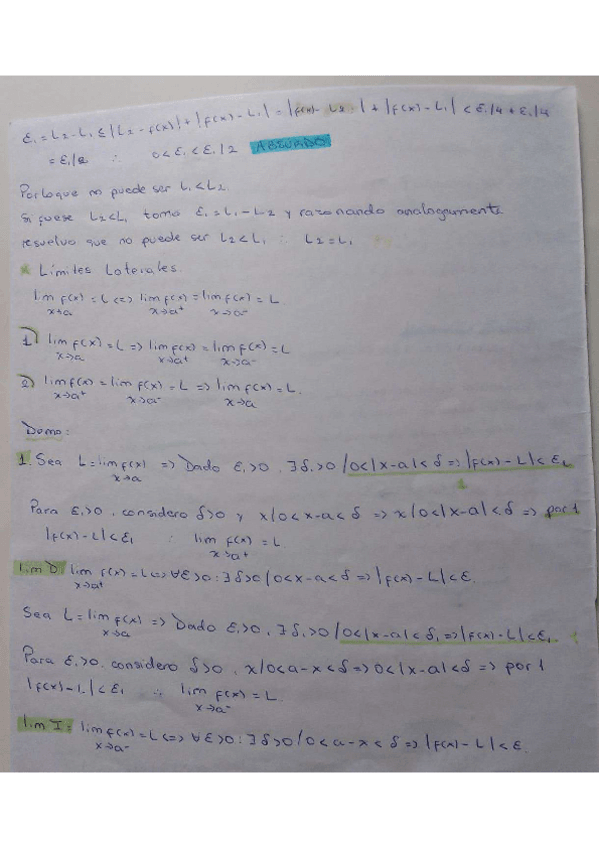 ε₁ = L₂ - L₁ ≤ |L₂ - f(x)| + |f(x) - L₁| = |f(x) - L₂| + |f(x) - L₁| < ε₁/4 + ε₁/4
= ε₁/2 ∴ 0 < ε₁ < ε₁/2 ABSURDO
Por lo que no puede ser L₁ < L₂.
Si fuese L₂ < L₁ tomo ε₁ = L₁ - L₂ y razonando analogamente
resuelvo que no puede ser L₂ < L₁ ∴ L₂ = L₁
* Límites Laterales.
lim f(x) = L <=> lim f(x) = lim f(x) = L
x→a x→a⁺ x→a⁻
1) lim f(x) = L => lim f(x) = lim f(x) = L
x→a x→a⁺ x→a⁻
2) lim f(x) = lim f(x) = L => lim f(x) = L.
x→a⁺ x→a⁻ x→a
Demo:
1. Sea L = lim f(x) => Dado ε₁>0, ∃ δ₁>0 / 0<|x-a|<δ => |f(x) - L| < ε₁
x→a 1
Para ε₁>0, considero δ>0 y x/0<x-a<δ => x/0<|x-a|<δ => por 1
|f(x) - L| < ε₁ ∴ lim f(x) = L.
x→a⁺
lim D: lim f(x) = L <=> ∀ε>0: ∃ δ>0 / 0<x-a<δ => |f(x) - L| < ε.
x→a⁺
Sea L = lim f(x) => Dado ε₁>0, ∃ δ₁>0 / 0<|x-a|<δ₁ => |f(x) - L| < ε₁. 1
x→a
Para ε₁>0, considero δ>0, x/0<a-x<δ => 0<|x-a|<δ => por 1
|f(x) - L| < ε₁ ∴ lim f(x) = L.
x→a⁻
lim I: lim f(x) = L <=> ∀ε>0: ∃ δ>0 / 0<a-x<δ => |f(x) - L| < ε.
x→a⁻